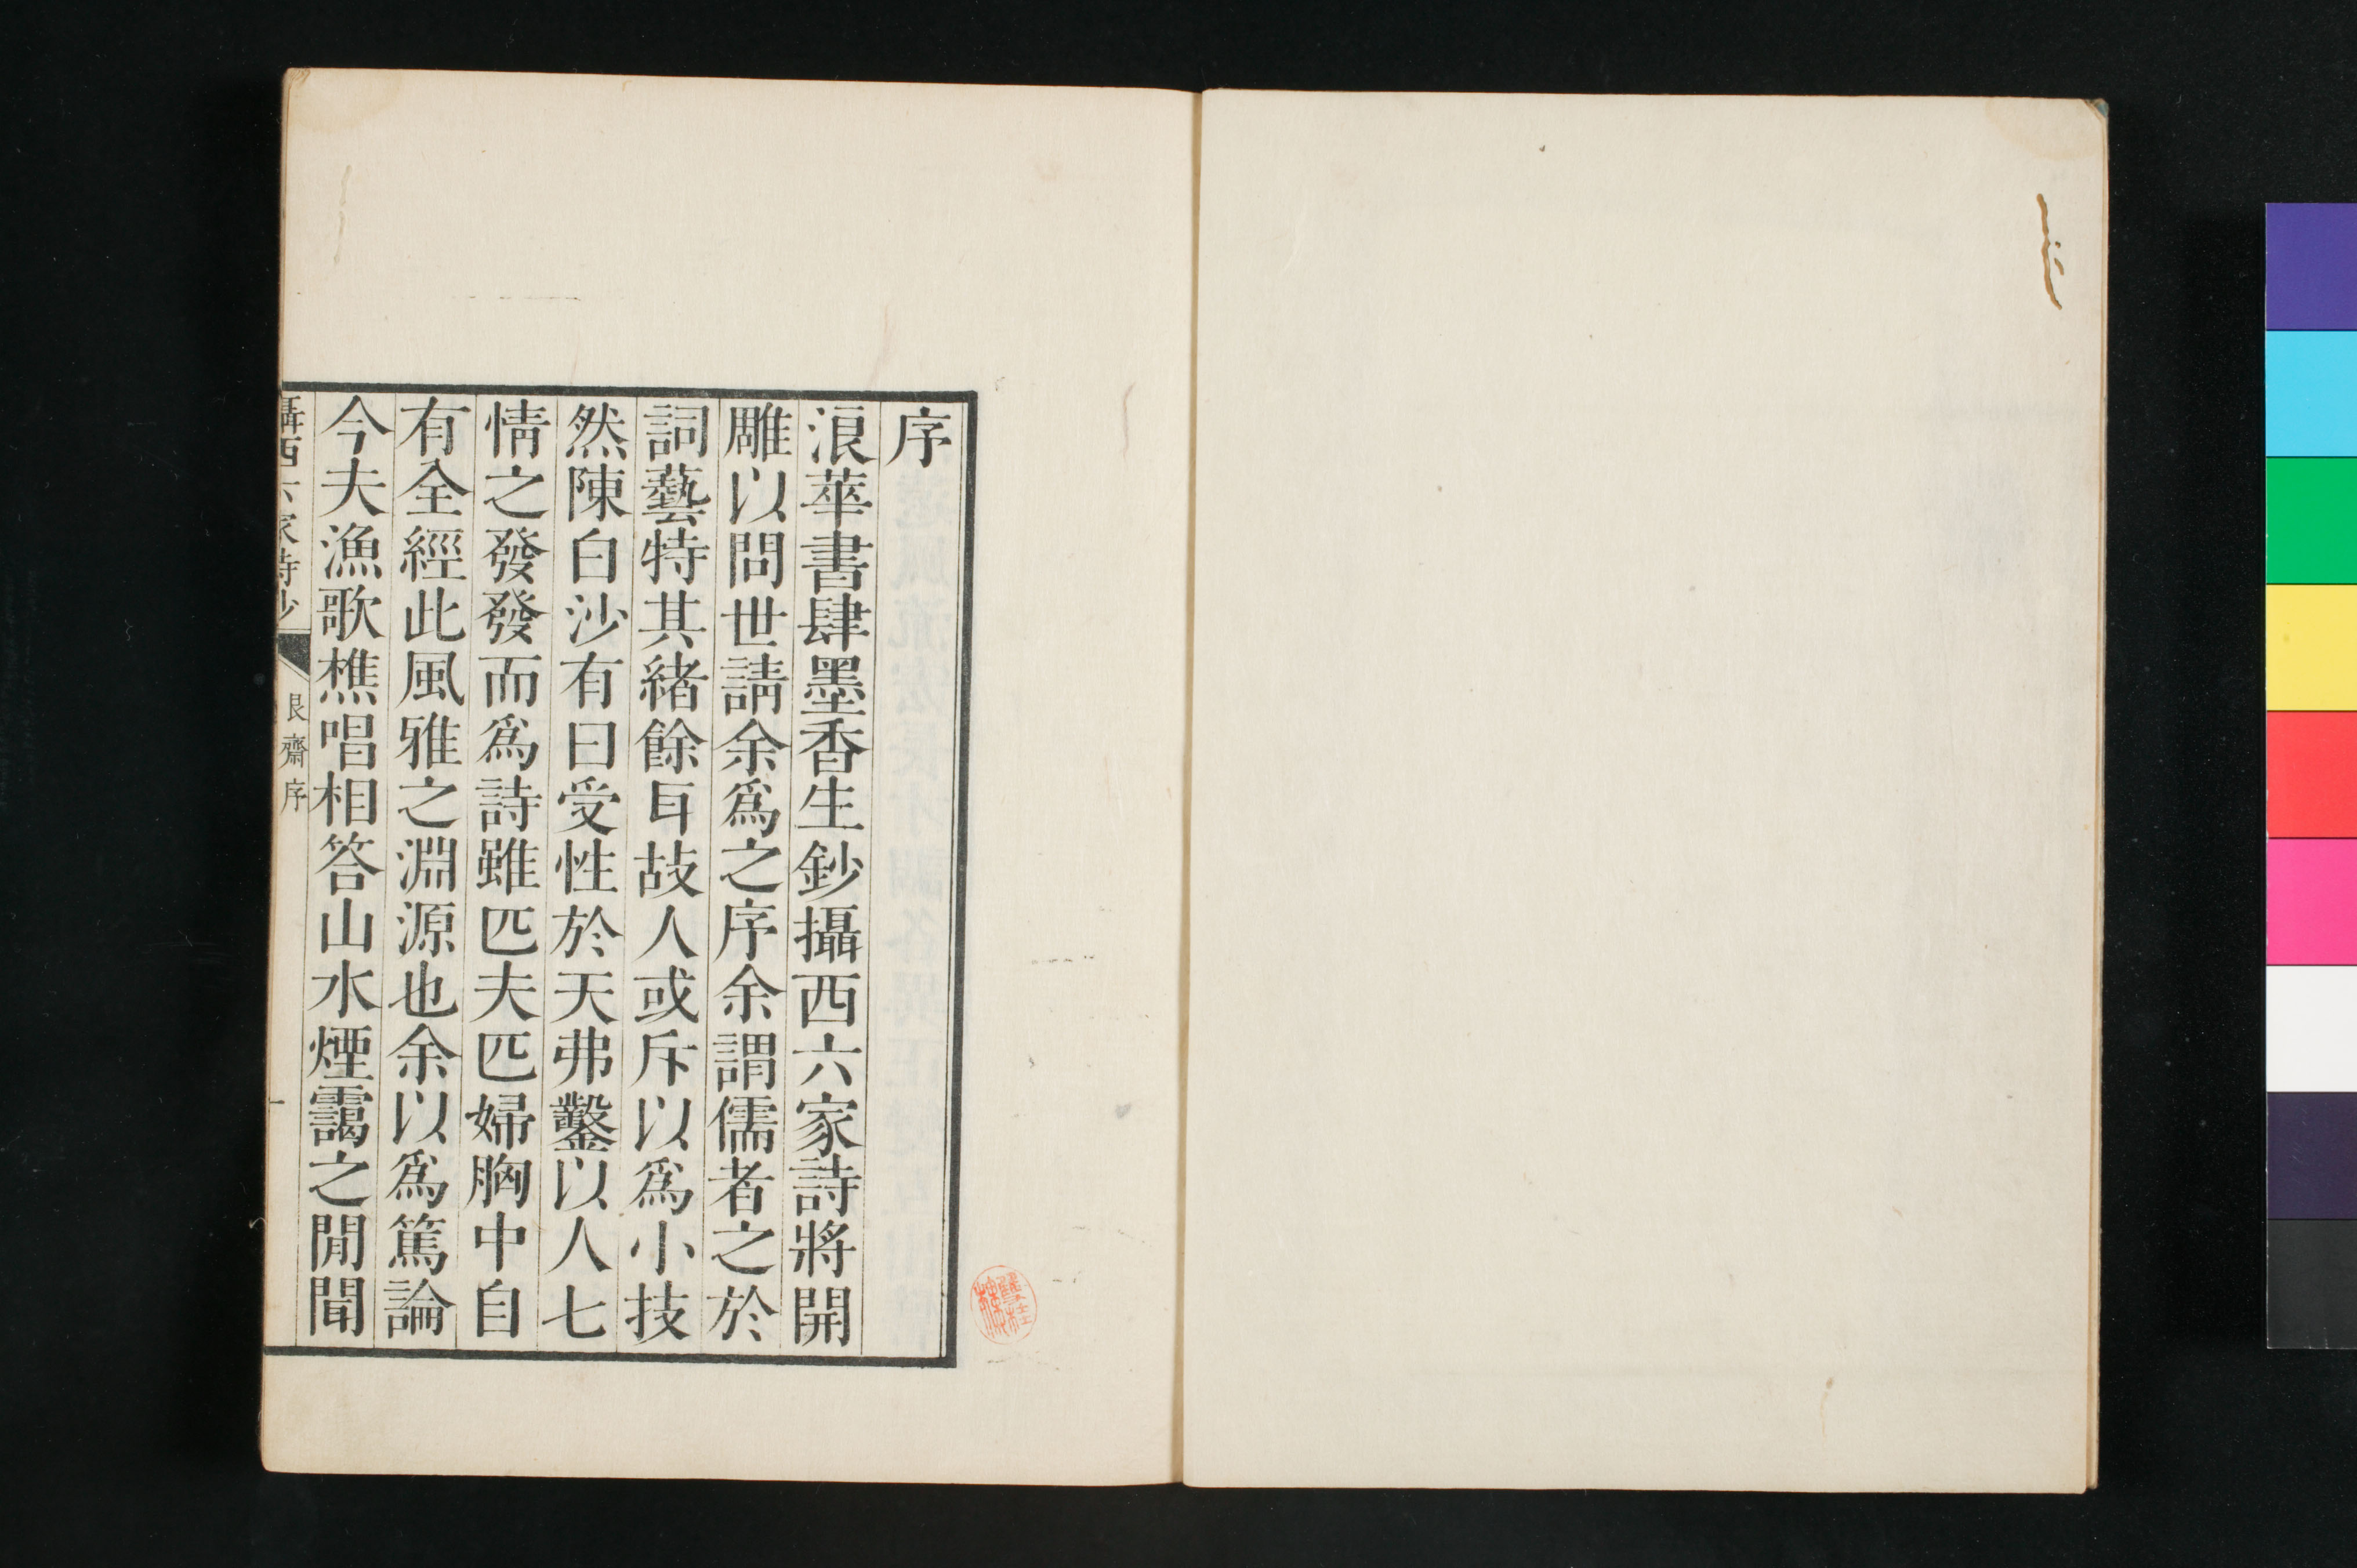 序
浪華書肆墨香生鈔攝西六家詩將開
雕以問世請余爲之序余謂儒者之於
詞藝特其緒餘耳故人或斥以爲小技
然陳白沙有曰受性於天弗鑿以人七
情之發發而爲詩雖匹夫匹婦胸中自
有全經此風雅之淵源也余以爲篤論
今夫漁歌樵唱相答山水煙靄之閒聞
攝西六家詩鈔
艮齋序
一